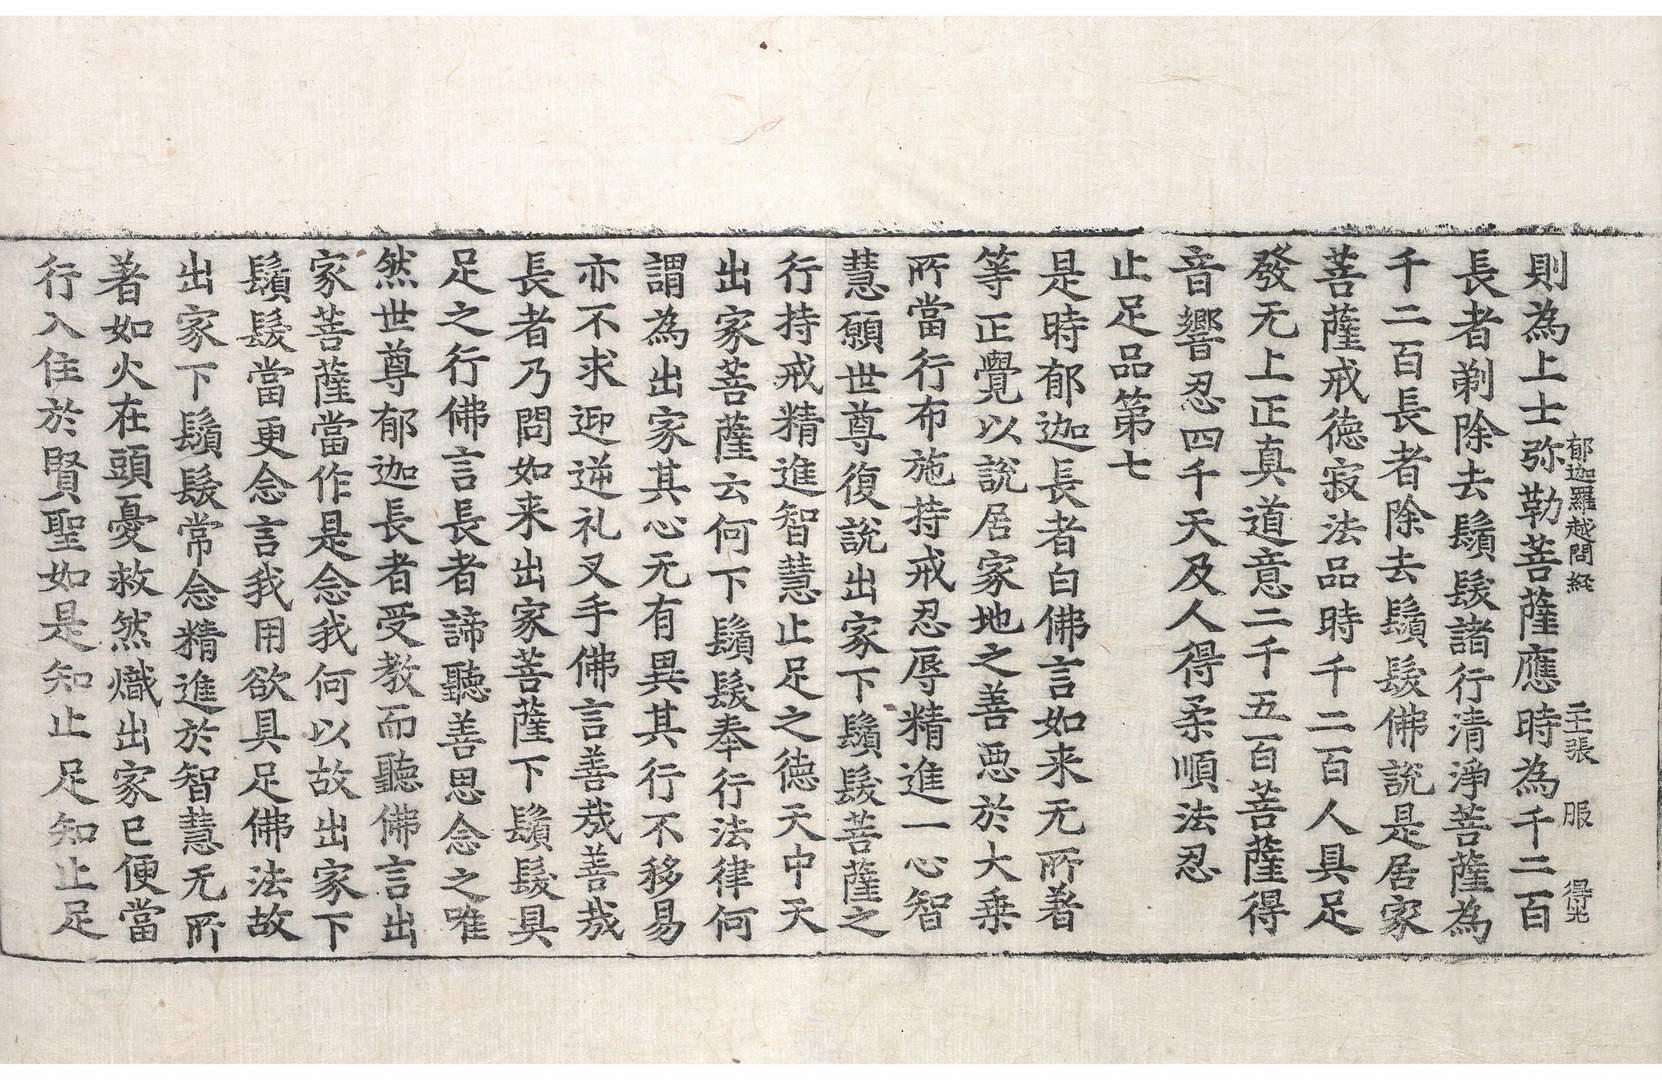 郁迦羅越問経 二十張 服 得
則為上士弥勒菩薩應時為千二百
長者剃除去鬚髮諸行清淨菩薩為
千二百長者除去鬚髮佛說是居家
菩薩戒徳寂法品時千二百人具足
發无上正真道意二千五百菩薩得
音響忍四千天及人得柔順法忍
止足品第七
是時郁迦長者白佛言如来无所著
等正覺以說居家地之善惡於大乗
所當行布施持戒忍辱精進一心智
慧願世尊復說出家下鬚髮菩薩之
行持戒精進智慧止足之德天中天
出家菩薩云何下鬚髮奉行法律何
謂為出家其心无有異其行不移易
亦不求迎逆礼叉手佛言善哉善哉
長者乃問如来出家菩薩下鬚髮具
足之行佛言長者諦聽善思念之唯
然世尊郁迦長者受教而聽佛言出
家菩薩當作是念我何以故出家下
鬚髮當更念言我用欲具足佛法故
出家下鬚髮常念精進於智慧无所
著如火在頭憂救然熾出家已便當
行入住於賢聖如是知止足知止足